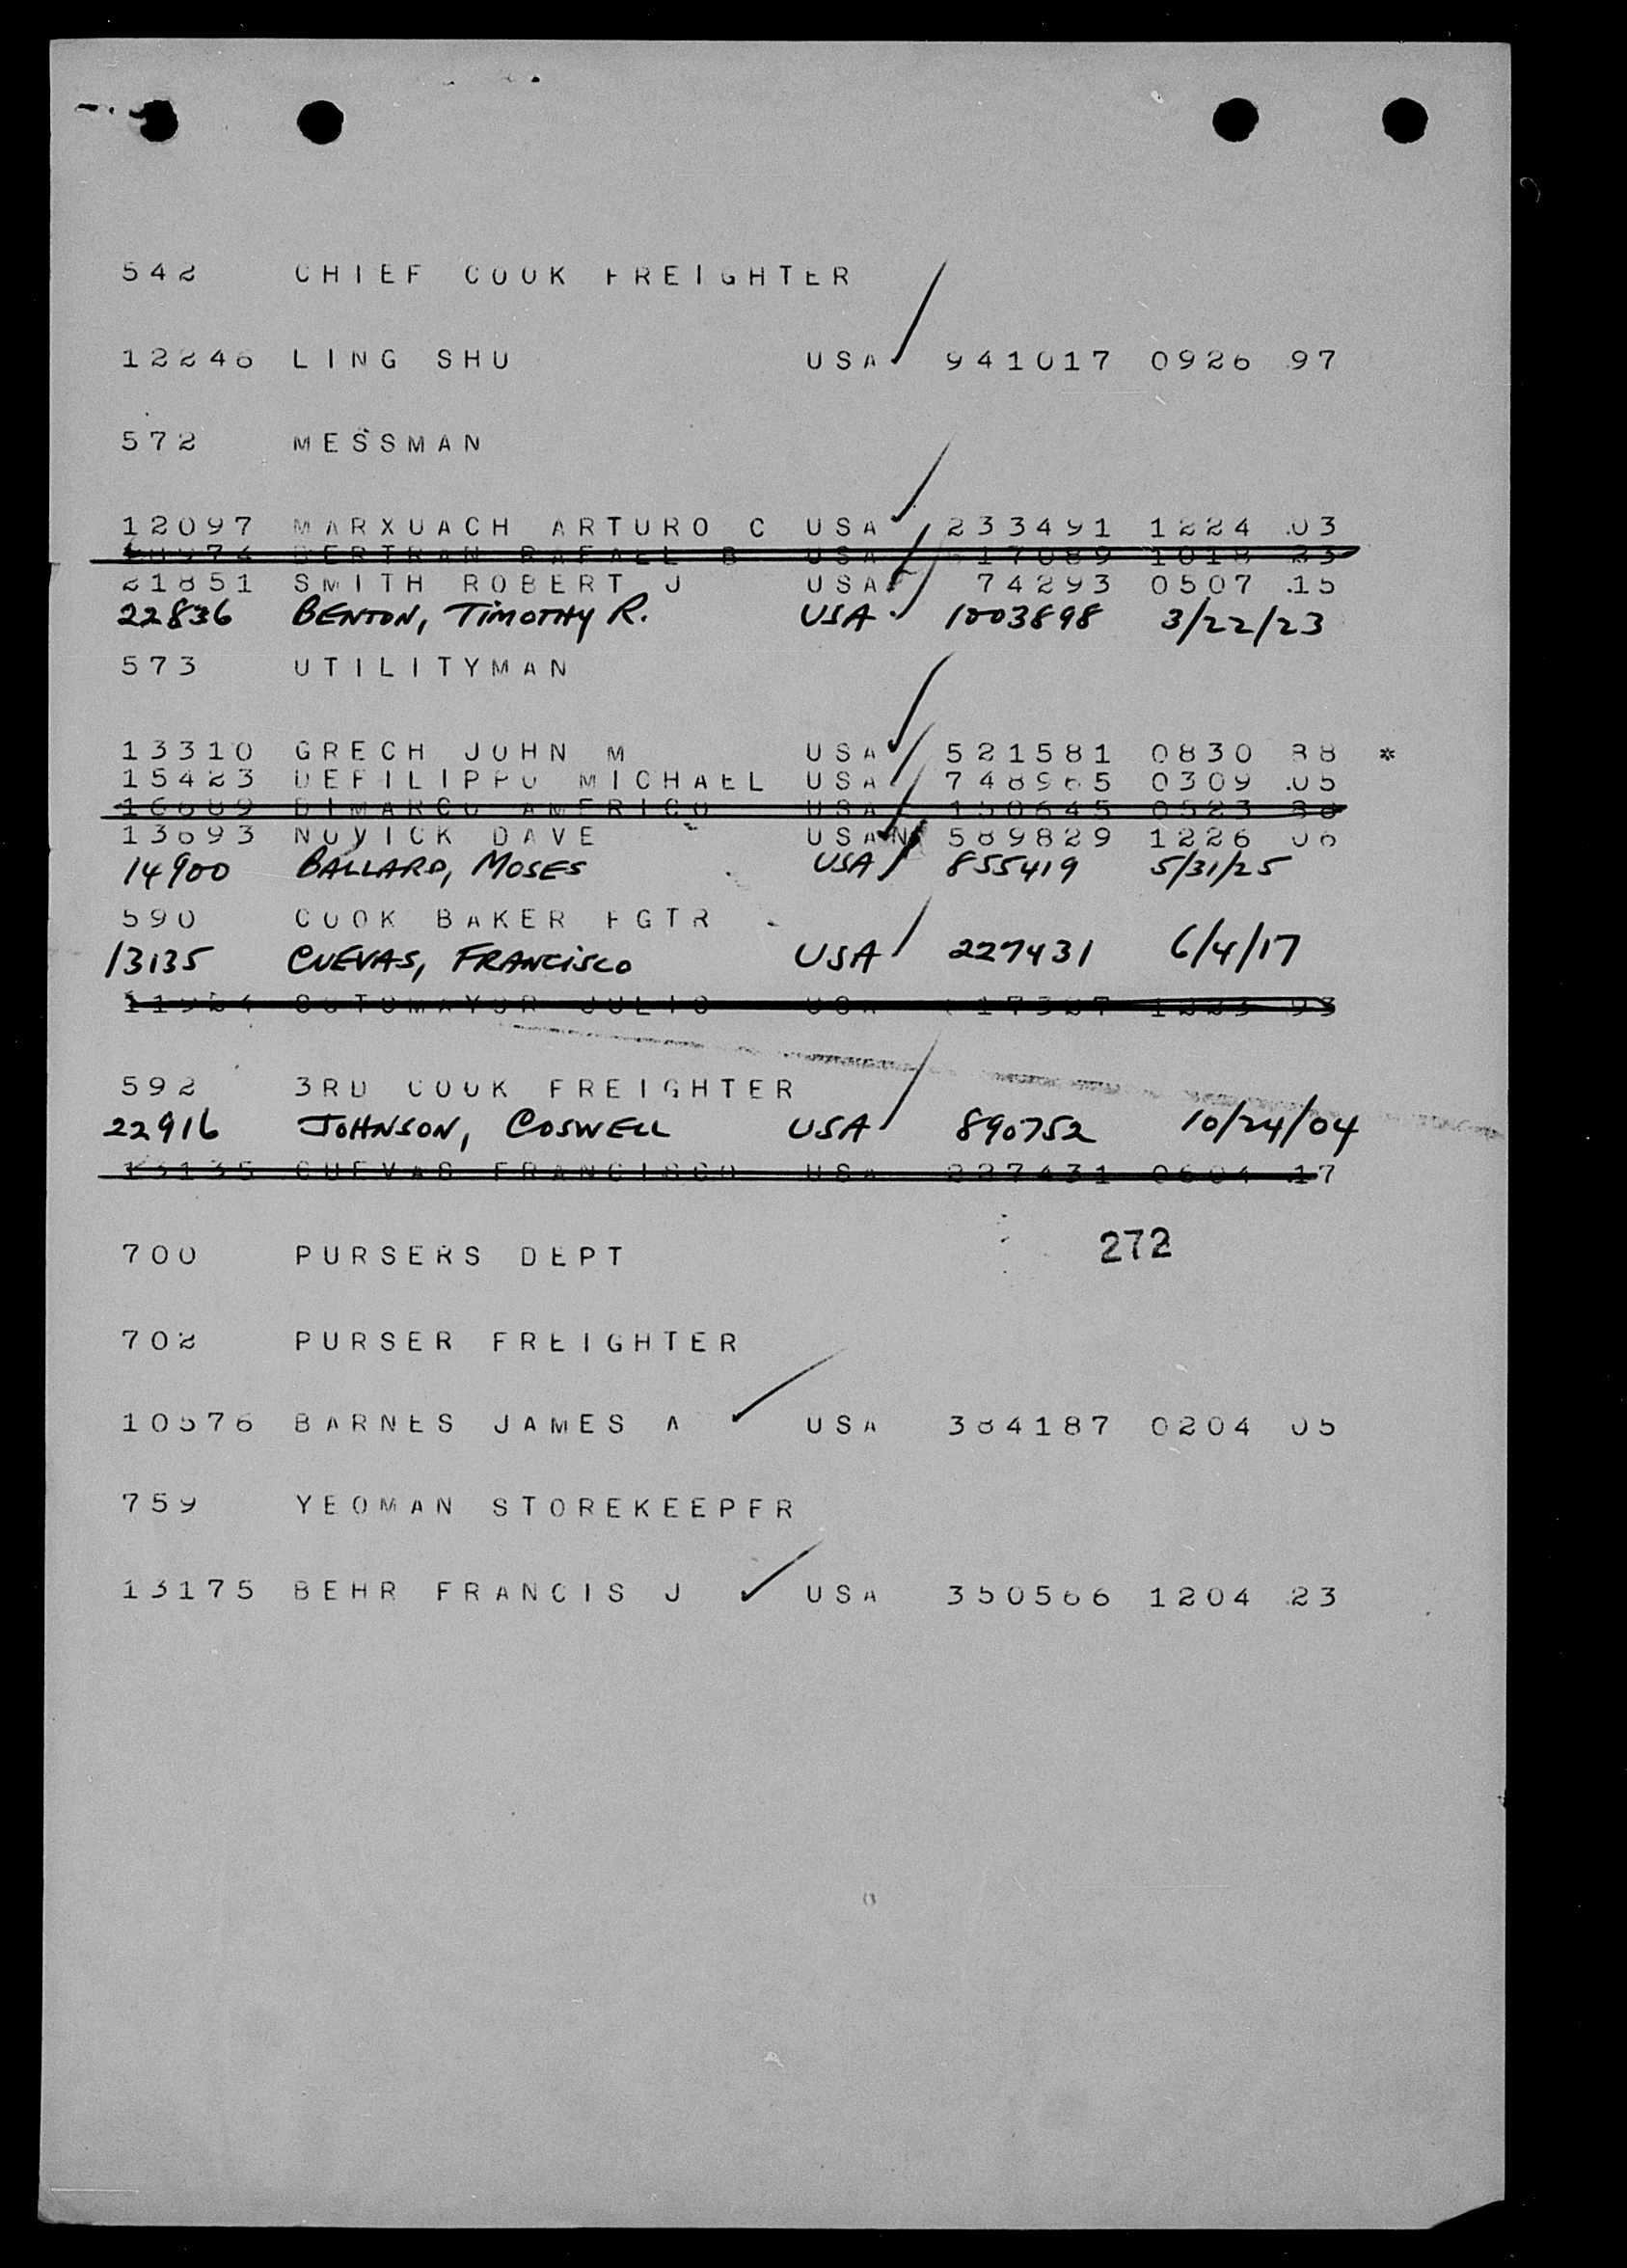 542 CHIEF COOK FREIGHTER
12246 LING SHU USA 941017 0926 97
572 MESSMAN
12097 MARXUACH ARTURO C USA 233491 1224 .03
BERTRAN RAFAEL B USA 1018
21851 SMITH ROBERT J USA 74293 0507 .15
22836 BENTON, TIMOTHY R. USA 1003898 3/22/23
573 UTILITYMAN
13310 GRECH JOHN M USA 521581 0830 88 *
15423 DEFILIPPO MICHAEL USA 748965 0309 .05
DIMARCO AMERICO USA 150645 0523
13693 NOVICK DAVE USA 589829 1226 06
14900 BALLARD, MOSES USA 855419 5/31/25
590 COOK BAKER FGTR
13135 CUEVAS, FRANCISCO USA 227431 6/4/17
SOTOMAYOR JULIO USA 93
592 3RD COOK FREIGHTER
22916 JOHNSON, COSWELL USA 890752 10/24/04
13135 CUEVAS FRANCISCO USA 227431 0604 .17
272
700 PURSERS DEPT
702 PURSER FREIGHTER
10576 BARNES JAMES A USA 384187 0204 05
759 YEOMAN STOREKEEPER
13175 BEHR FRANCIS J USA 350566 1204 23